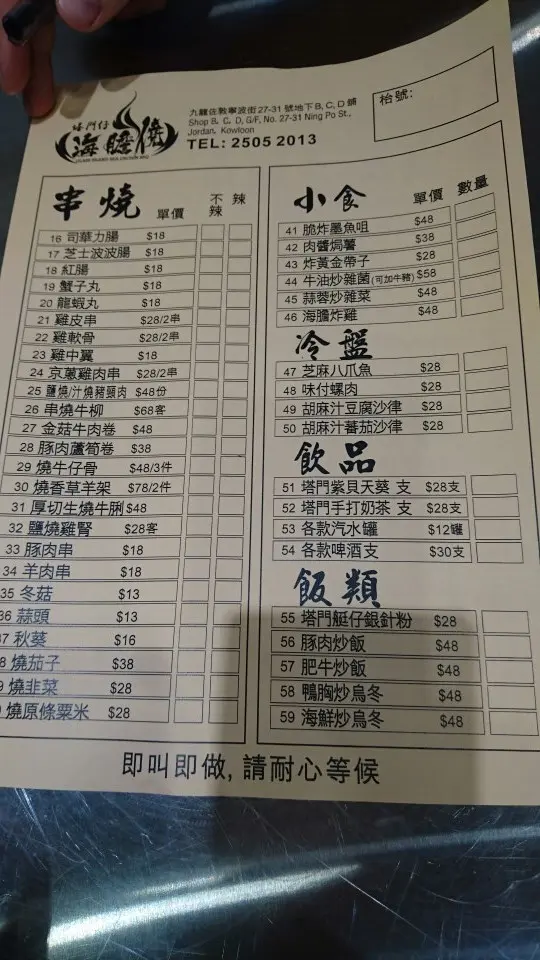 塔門仔
海膽燒
九龍佐敦寧波街27-31號地下B, C, D 鋪
Shop B, C, D, G/F, No. 27-31 Ning Po St.,
Jordan, Kowloon
TEL: 2505 2013
枱號:
串燒 單價 不辣 辣
16 司華力腸 $18
17 芝士波波腸 $18
18 紅腸 $18
19 蟹子丸 $18
20 龍蝦丸 $18
21 雞皮串 $28/2串
22 雞軟骨 $28/2串
23 雞中翼 $18
24 京蔥雞肉串 $28/2串
25 鹽燒/汁燒豬頸肉 $48份
26 串燒牛柳 $68客
27 金菇牛肉卷 $48
28 豚肉蘆筍卷 $38
29 燒牛仔骨 $48/3件
30 燒香草羊架 $78/2件
31 厚切生燒牛脷 $48
32 鹽燒雞腎 $28客
33 豚肉串 $18
34 羊肉串 $18
35 冬菇 $13
36 蒜頭 $13
37 秋葵 $16
8 燒茄子 $38
9 燒韭菜 $28
燒原條粟米 $28
小食 單價 數量
41 脆炸墨魚咀 $48
42 肉醬焗薯 $38
43 炸黃金帶子 $28
44 牛油炒雜菌(可加牛豬) $58
45 蒜蓉炒雜菜 $48
46 海膽炸雞 $48
冷盤
47 芝麻八爪魚 $28
48 味付螺肉 $28
49 胡麻汁豆腐沙律 $28
50 胡麻汁蕃茄沙律 $28
飲品
51 塔門紫貝天葵 支 $28支
52 塔門手打奶茶 支 $28支
53 各款汽水罐 $12罐
54 各款啤酒支 $30支
飯類
55 塔門艇仔銀針粉 $28
56 豚肉炒飯 $48
57 肥牛炒飯 $48
58 鴨胸炒烏冬 $48
59 海鮮炒烏冬 $48
即叫即做, 請耐心等候